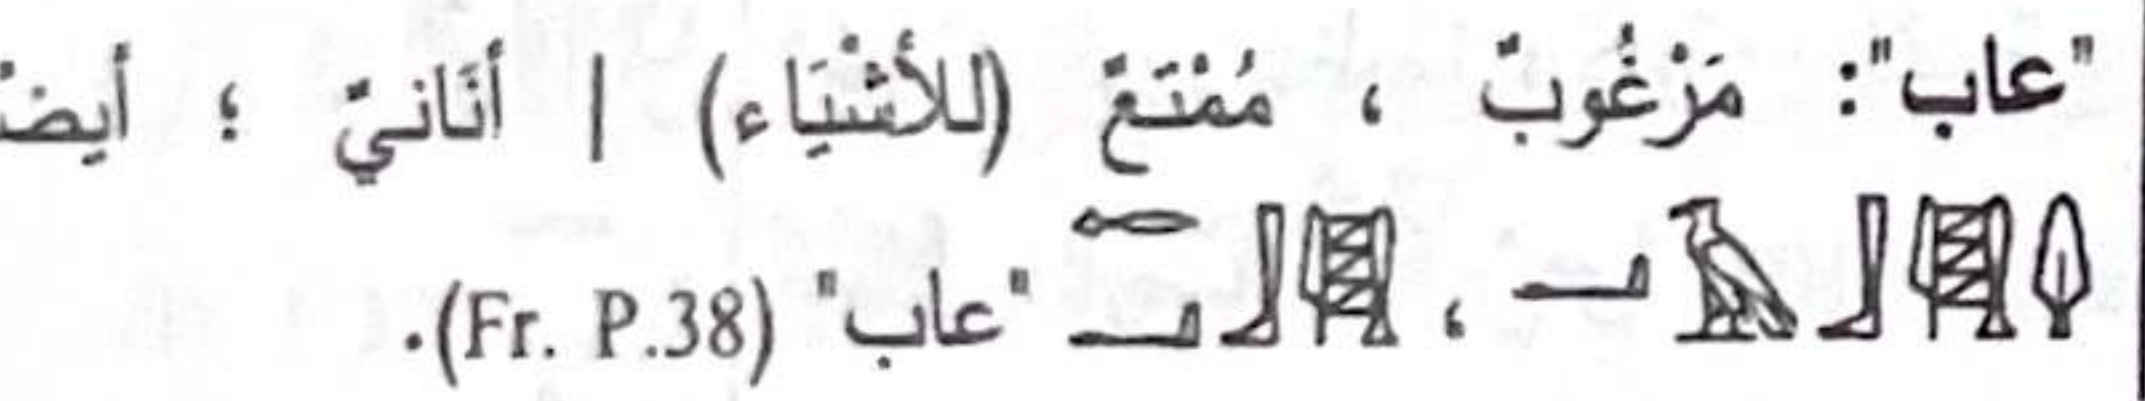 "عاب": مَرْغُوبٌ ، مُمْتَعٌ (للأشْيَاء) | أنَانيّ ؛ أيضـ
، "عاب" (Fr. P.38).